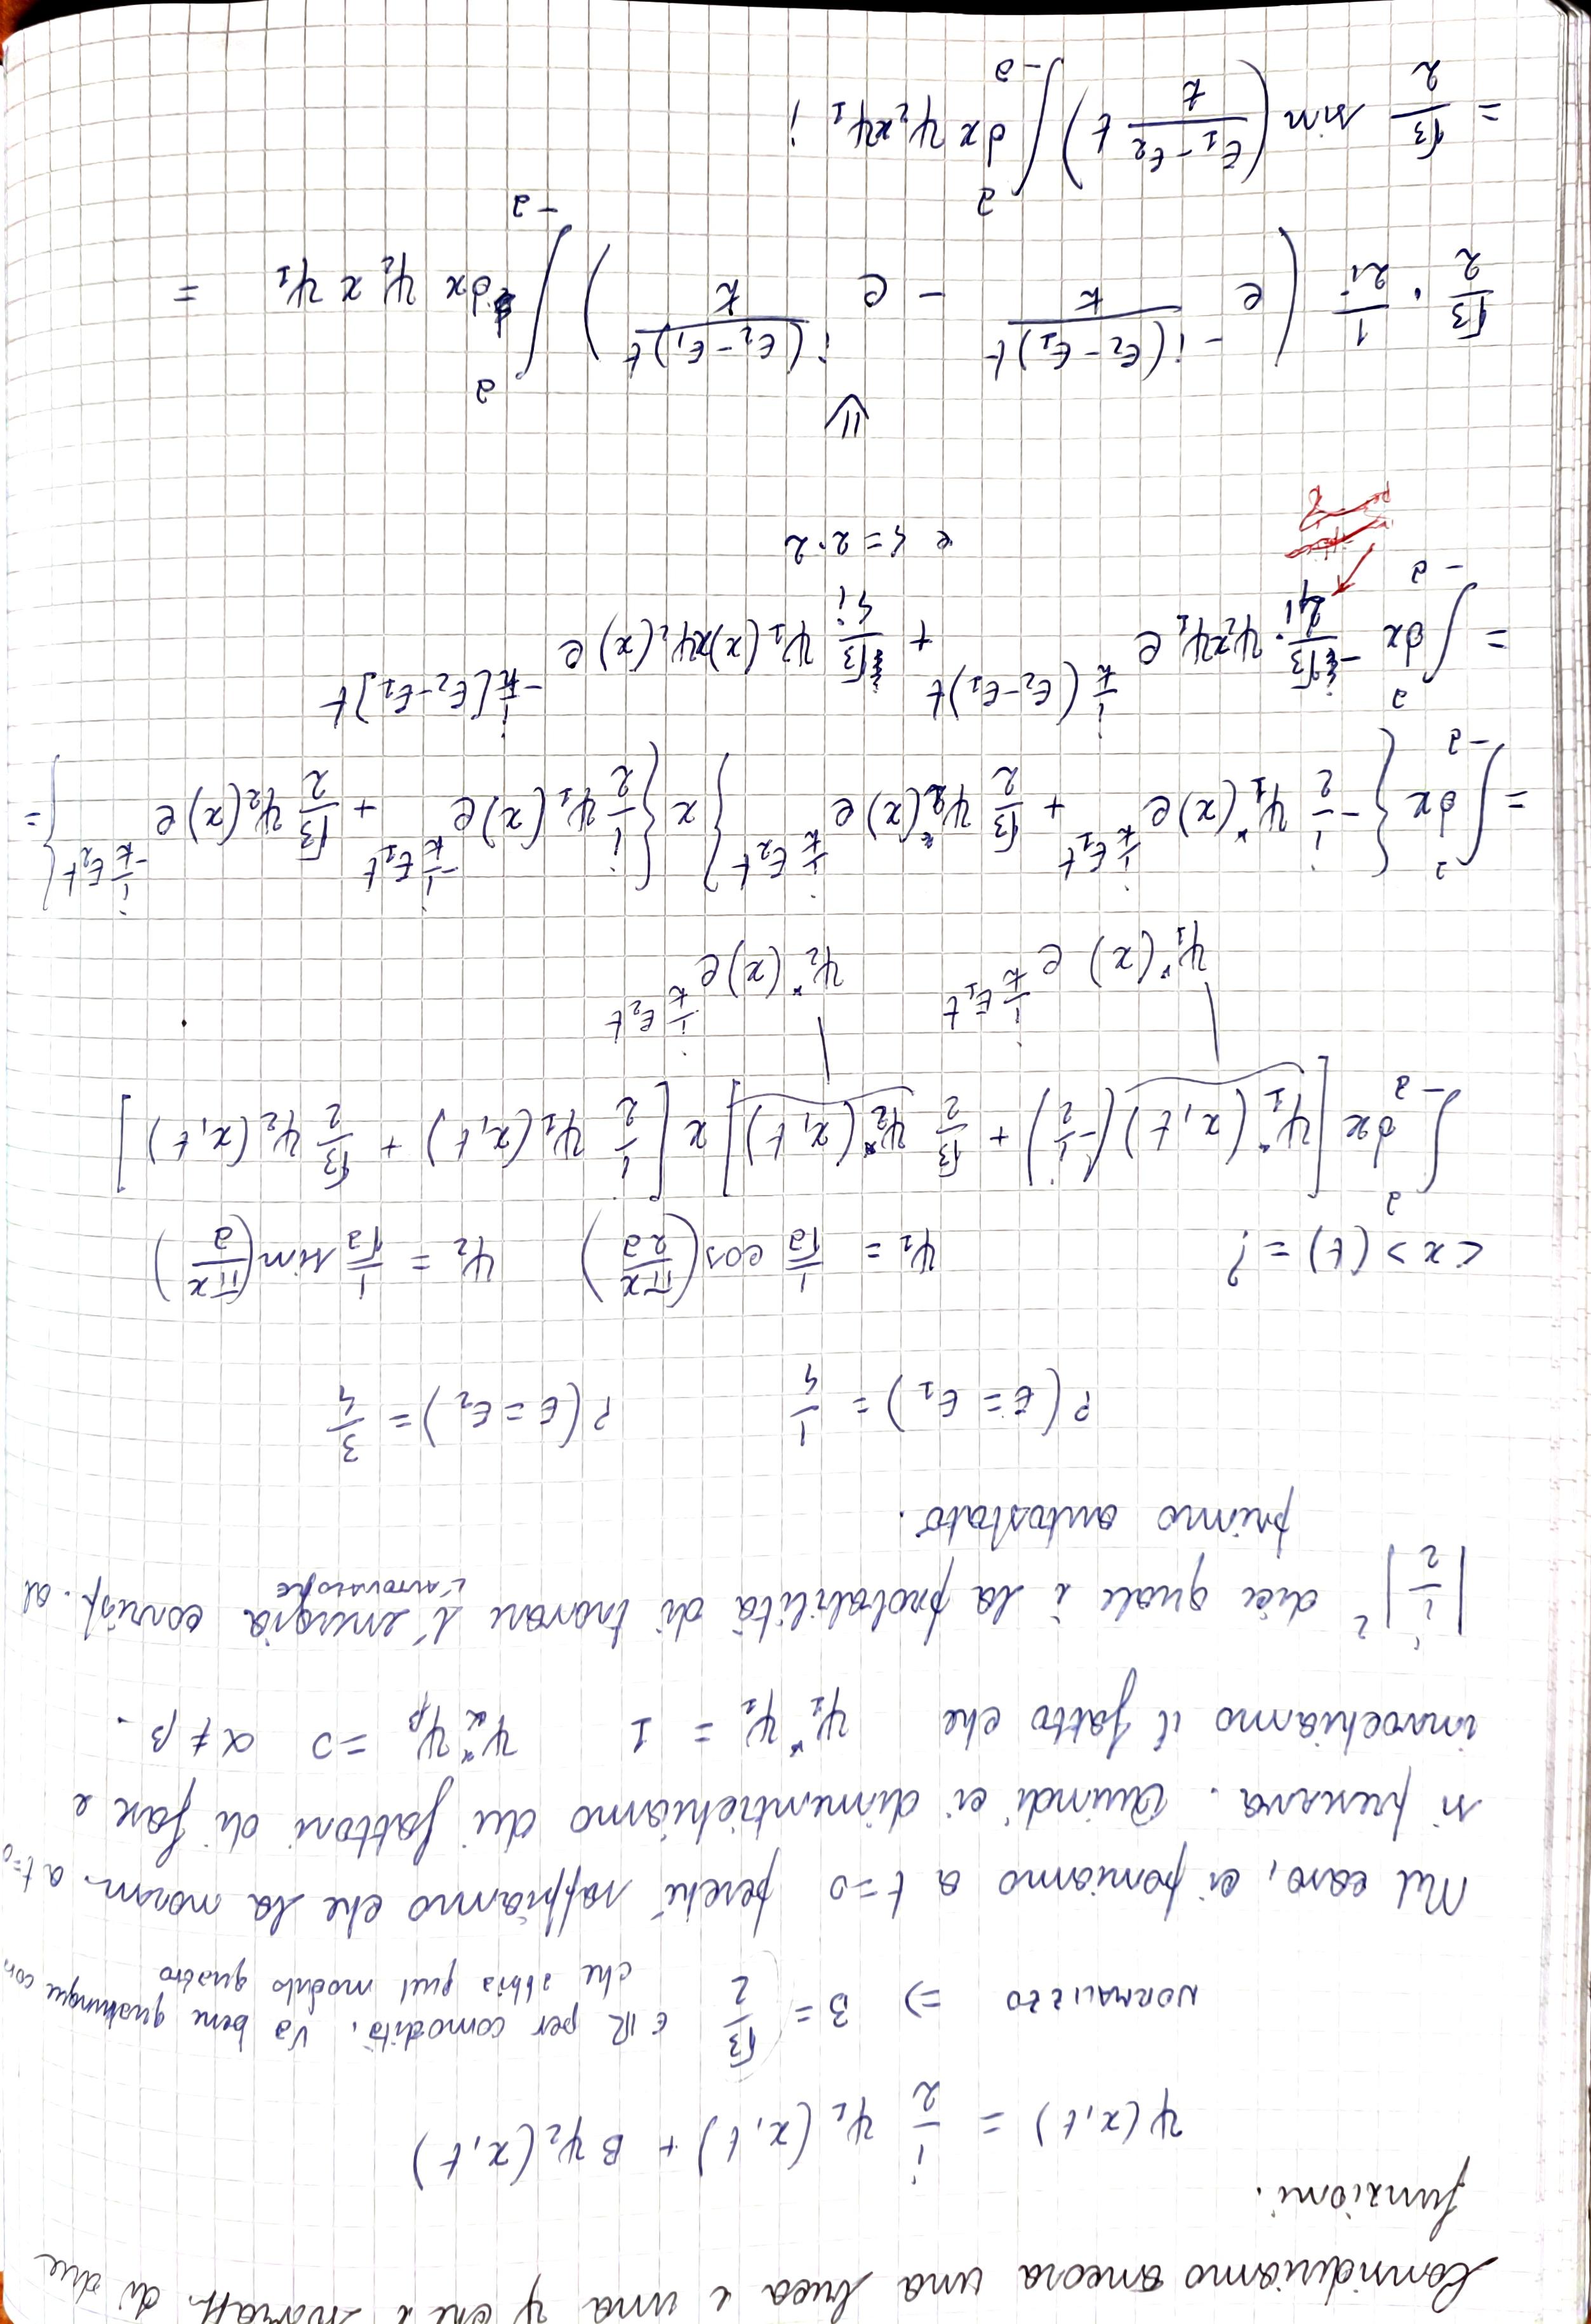 Consideriamo ancora una buca e una ψ che è di due
funzioni.
ψ(x,t) = i/2 ψ₁(x,t) + Bψ₂(x,t)
NORMALIZZO ⇒ B = √3/2 ∈ ℝ per comodità. Va bene qualunque con
che abbia quel modulo quadro
Nel caso, ci poniamo a t=0 perché sappiamo che la norm. a t=0
si preserva. Quindi ci dimentichiamo dei fattori di fase e
invochiamo il fatto che ψ₁*ψ₁ = 1 ψα*ψβ = 0 α ≠ β.
|i/2|² dice quale è la probabilità di trovare l'energia corrisp. al
L'autovalore
primo autostato.
P(E = E₁) = 1/4 P(E = E₂) = 3/4
<x>(t) = ? ψ₁ = 1/√a cos(πx/2a) ψ₂ = 1/√a sin(πx/a)
∫₋ₐᵃ dx [ψ₁*(x,t)(-i/2) + √3/2 ψ₂*(x,t)] x [i/2 ψ₁(x,t) + √3/2 ψ₂(x,t)]
ψ₁*(x) e^(i/ħ E₁t) ψ₂*(x) e^(i/ħ E₂t)
= ∫₋ₐᵃ dx {-i/2 ψ₁*(x) e^(i/ħ E₁t) + √3/2 ψ₂*(x) e^(i/ħ E₂t)} x {i/2 ψ₁(x) e^(-i/ħ E₁t) + √3/2 ψ₂(x) e^(-i/ħ E₂t)} =
= ∫₋ₐᵃ dx -√3/4i · ψ₂xψ₁ e^(i/ħ (E₂-E₁)t) + √3/4i ψ₁(x)xψ₂(x) e^(-i/ħ (E₂-E₁)t)
e 4 = 2·2
⇓
√3/2 · 1/2i (e^(-i(E₂-E₁)t/ħ) - e^(i(E₂-E₁)t/ħ)) ∫₋ₐᵃ dx ψ₂ x ψ₁ =
= √3/2 sin(E₁-E₂/ħ t) ∫₋ₐᵃ dx ψ₂xψ₁ ;